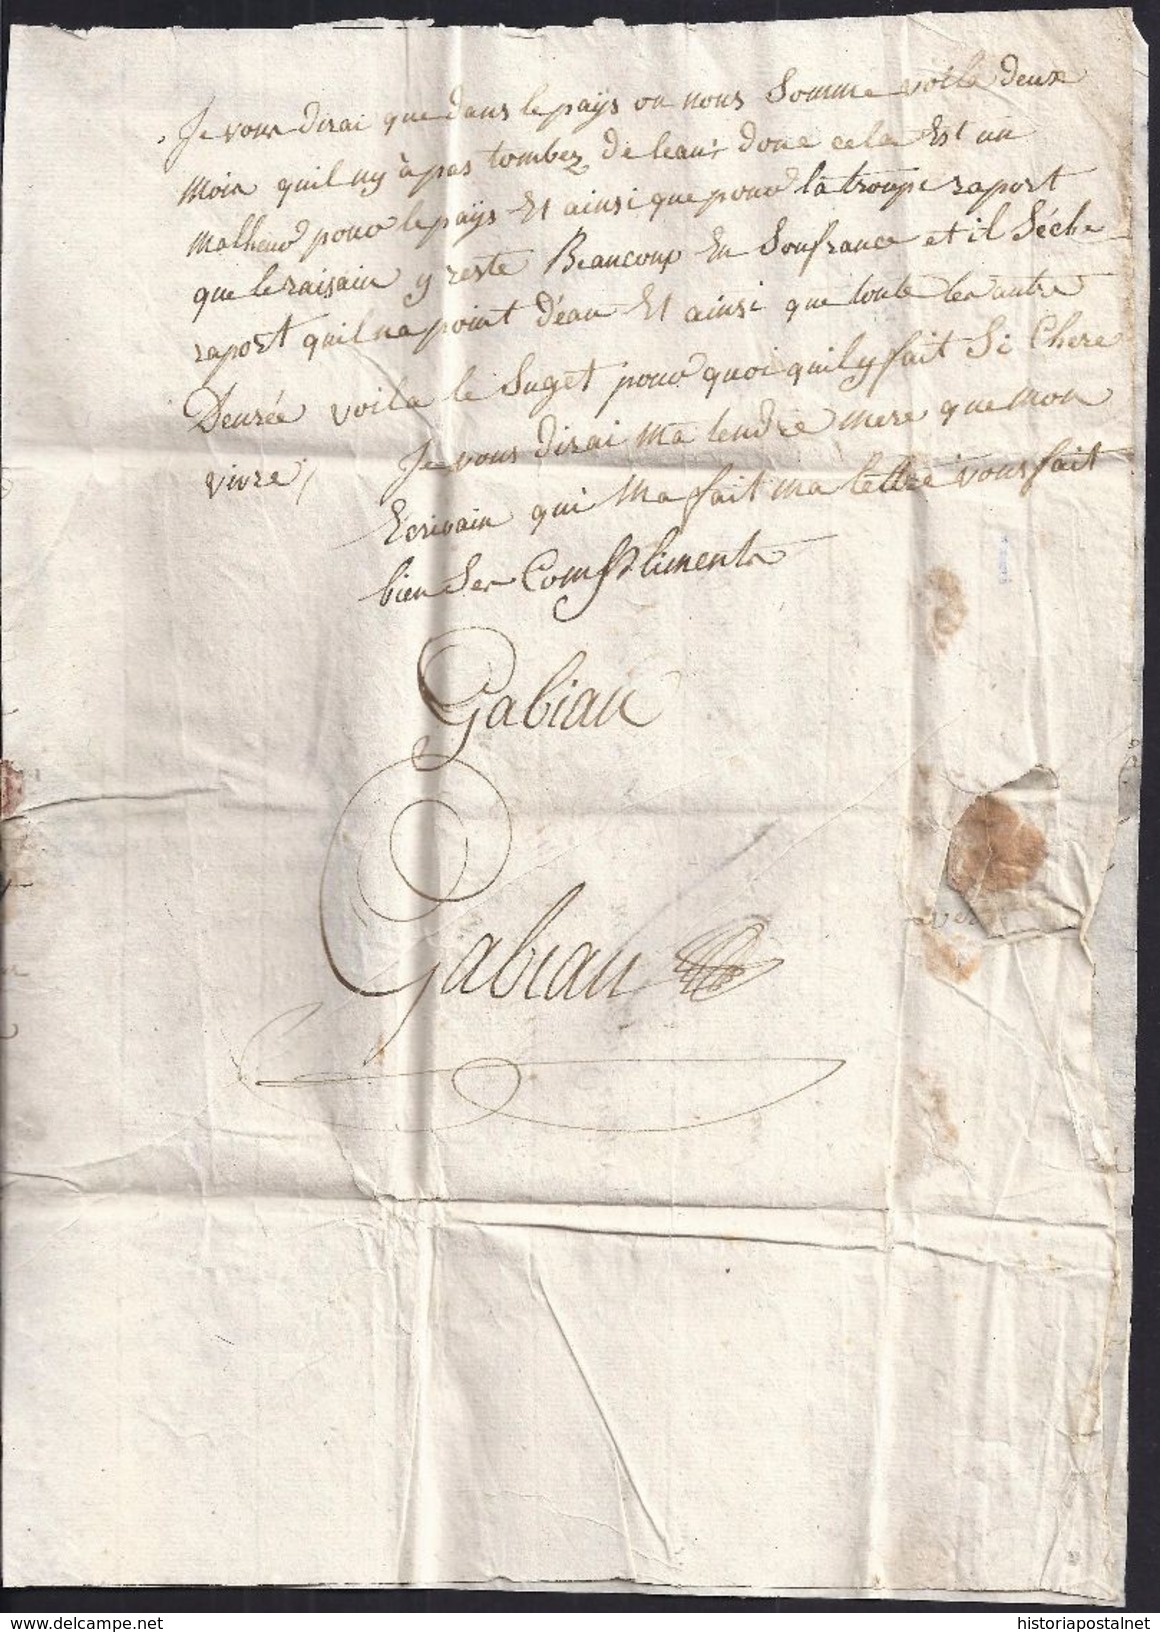 Je vous dirai que dans le pays ou nous somme voila deux
mois quil ny à pas tombez de leau, donc cela Est un
malheur pour le pays Et ainsi que pour la troupe raport
que le raisain y reste Beaucoup En soufrance et il séche
raport quil na point d'eau Et ainsi que toute les autre
Denrée voila le suget pour quoi quil y fait si Chere
vivre,
Je vous dirai ma tendre mere que mon
Ecrivain qui ma fait ma lettre vous fait
bien ses Compliments
Gabian
Gabian
historiapostalnet